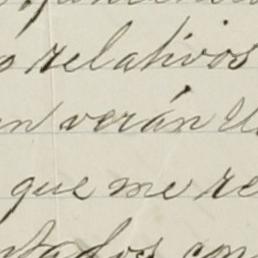 relativos
verán U
que me re
tados con